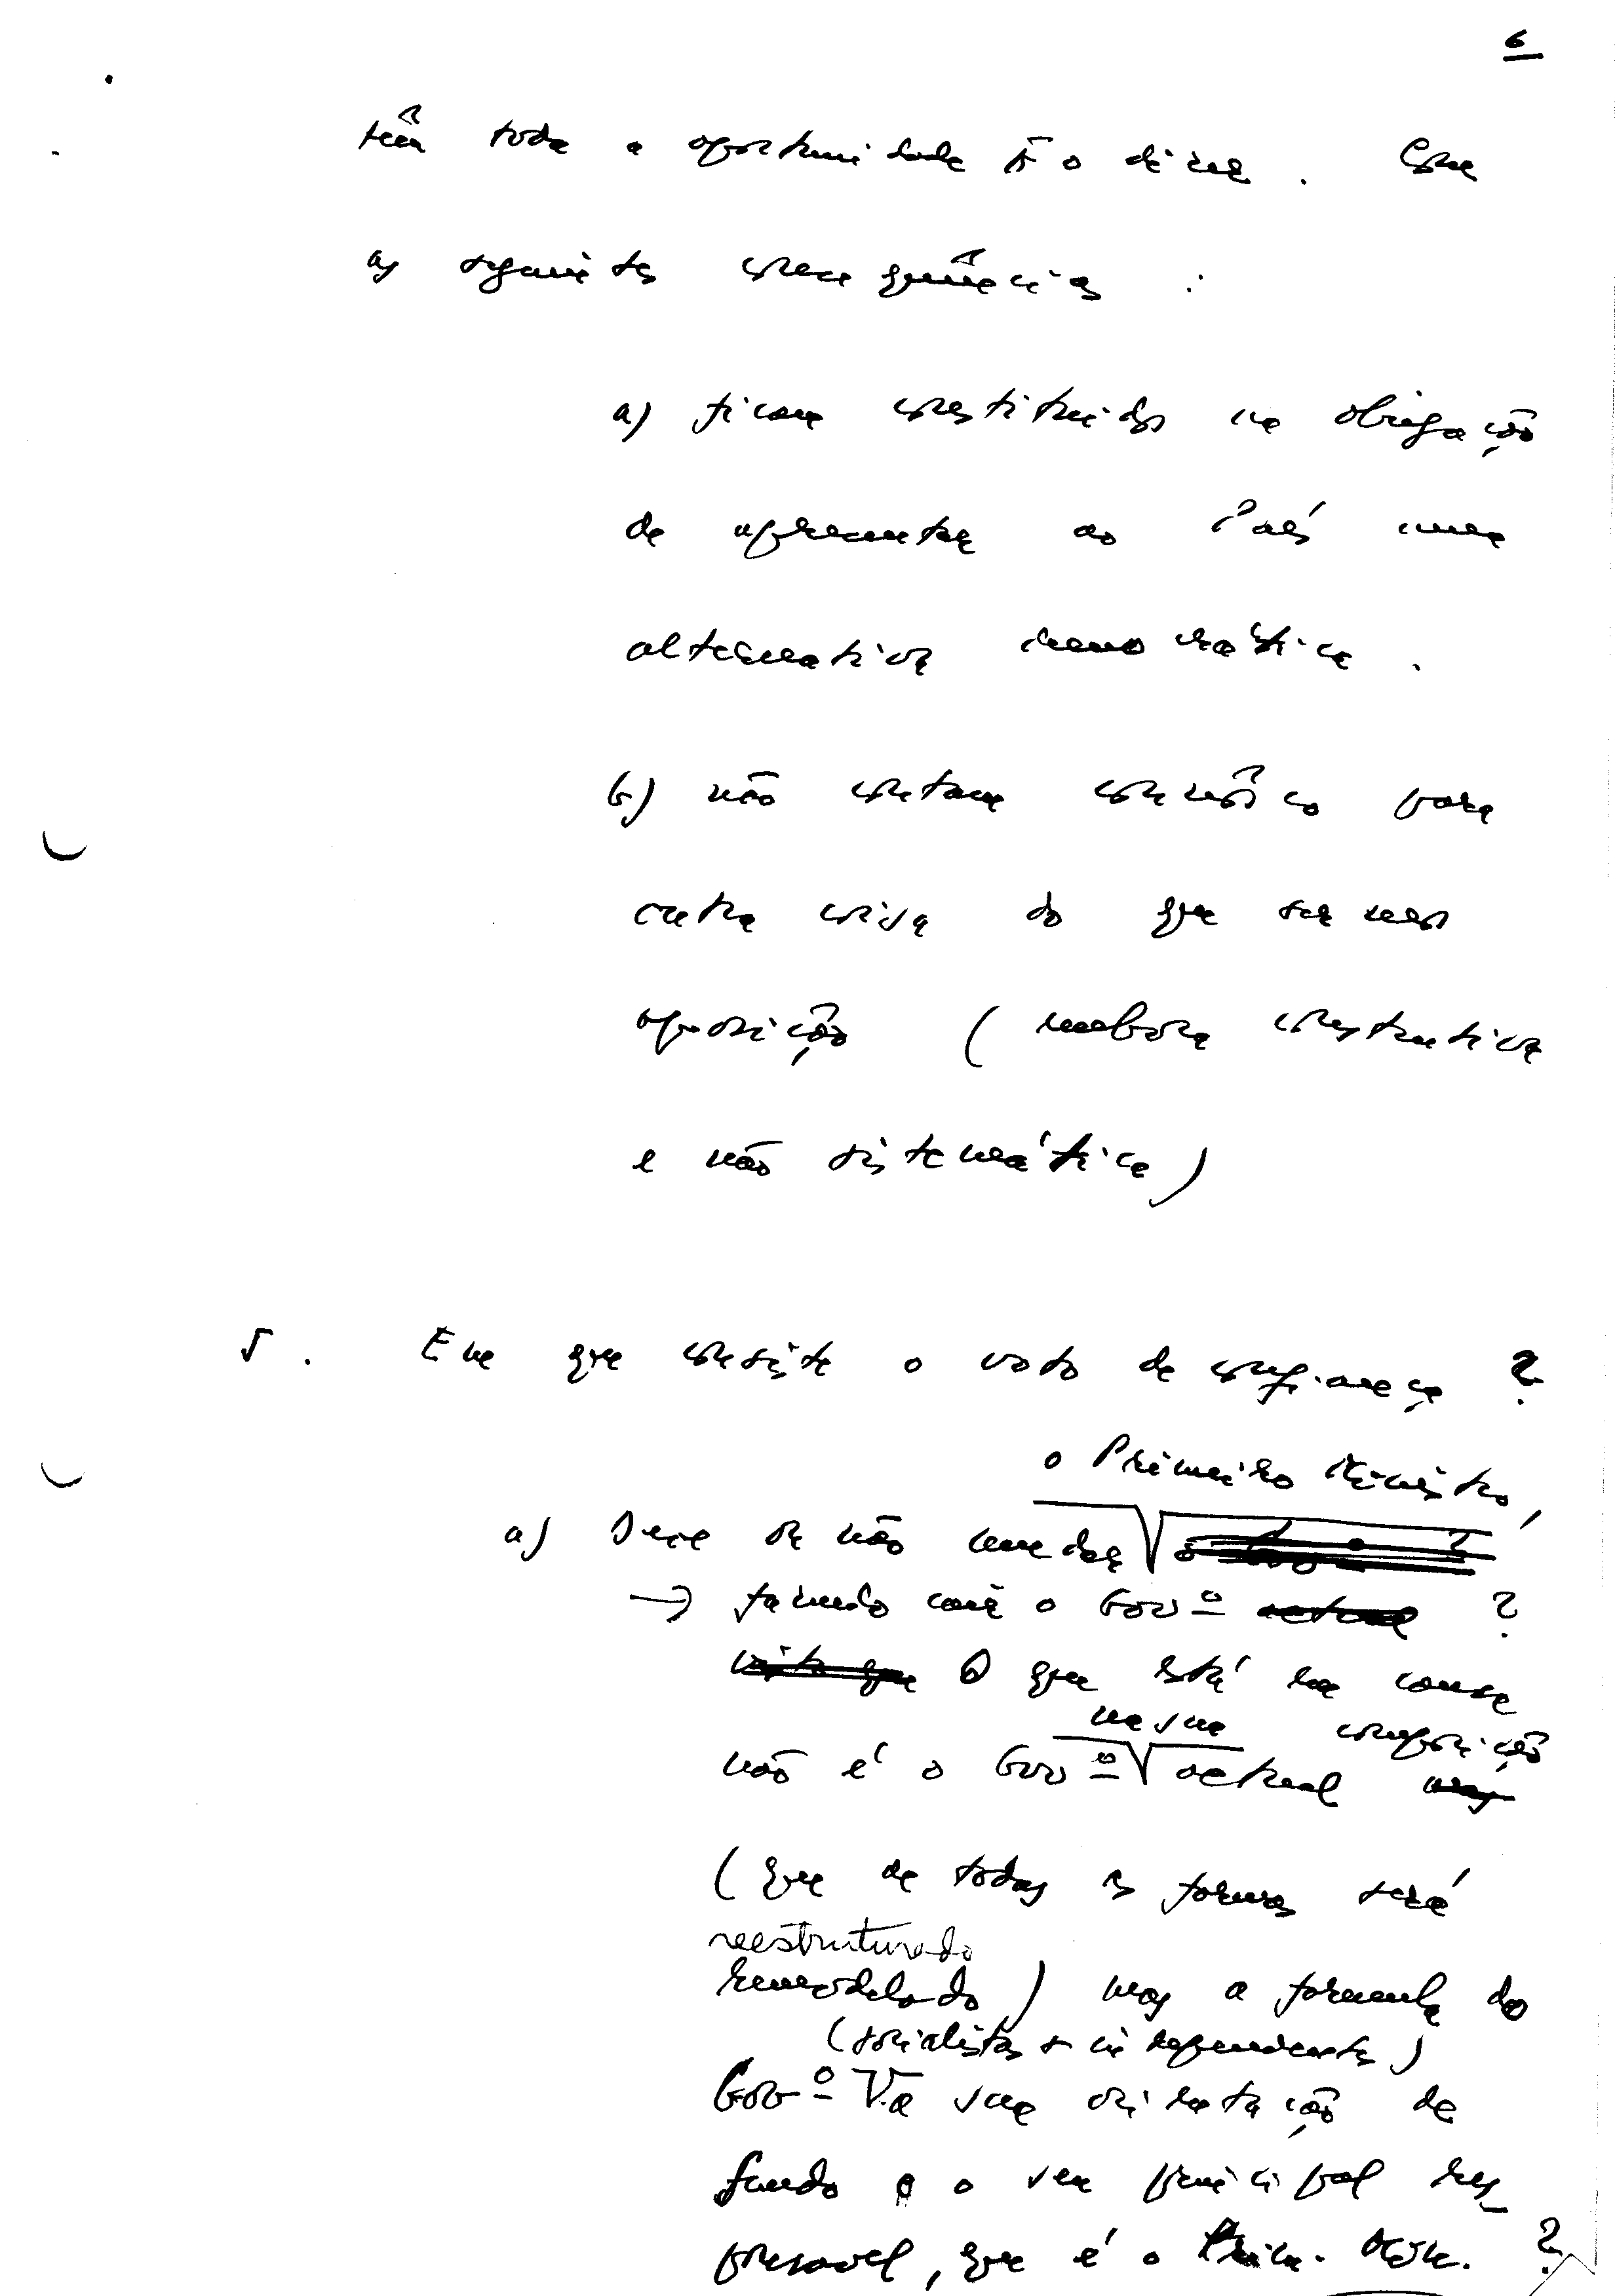 6
têm toda a oportunidade p̄ o dizer. Com
as seguintes consequências :
a) ficam constituidos na obrigação
de apresentar ao País uma
alternativa democrática.
b) não contam connôsco para
outra coisa do que sermos
oposição (embora construtiva
e não sistemática)
5. Em que consiste o voto de confiança ?
o Primeiro Ministro,
a) Deve ou não mudar
→ formado com o Govº ?
O que está em causa
na sua composição
não é o Govº actual
(que de todas as formas será
reestruturado
remodelado) mas a formula do
(socialistas + independentes)
Govº a sua orientação de
fundo e o seu principal res-
ponsavel, que é o Prim. Min. ?